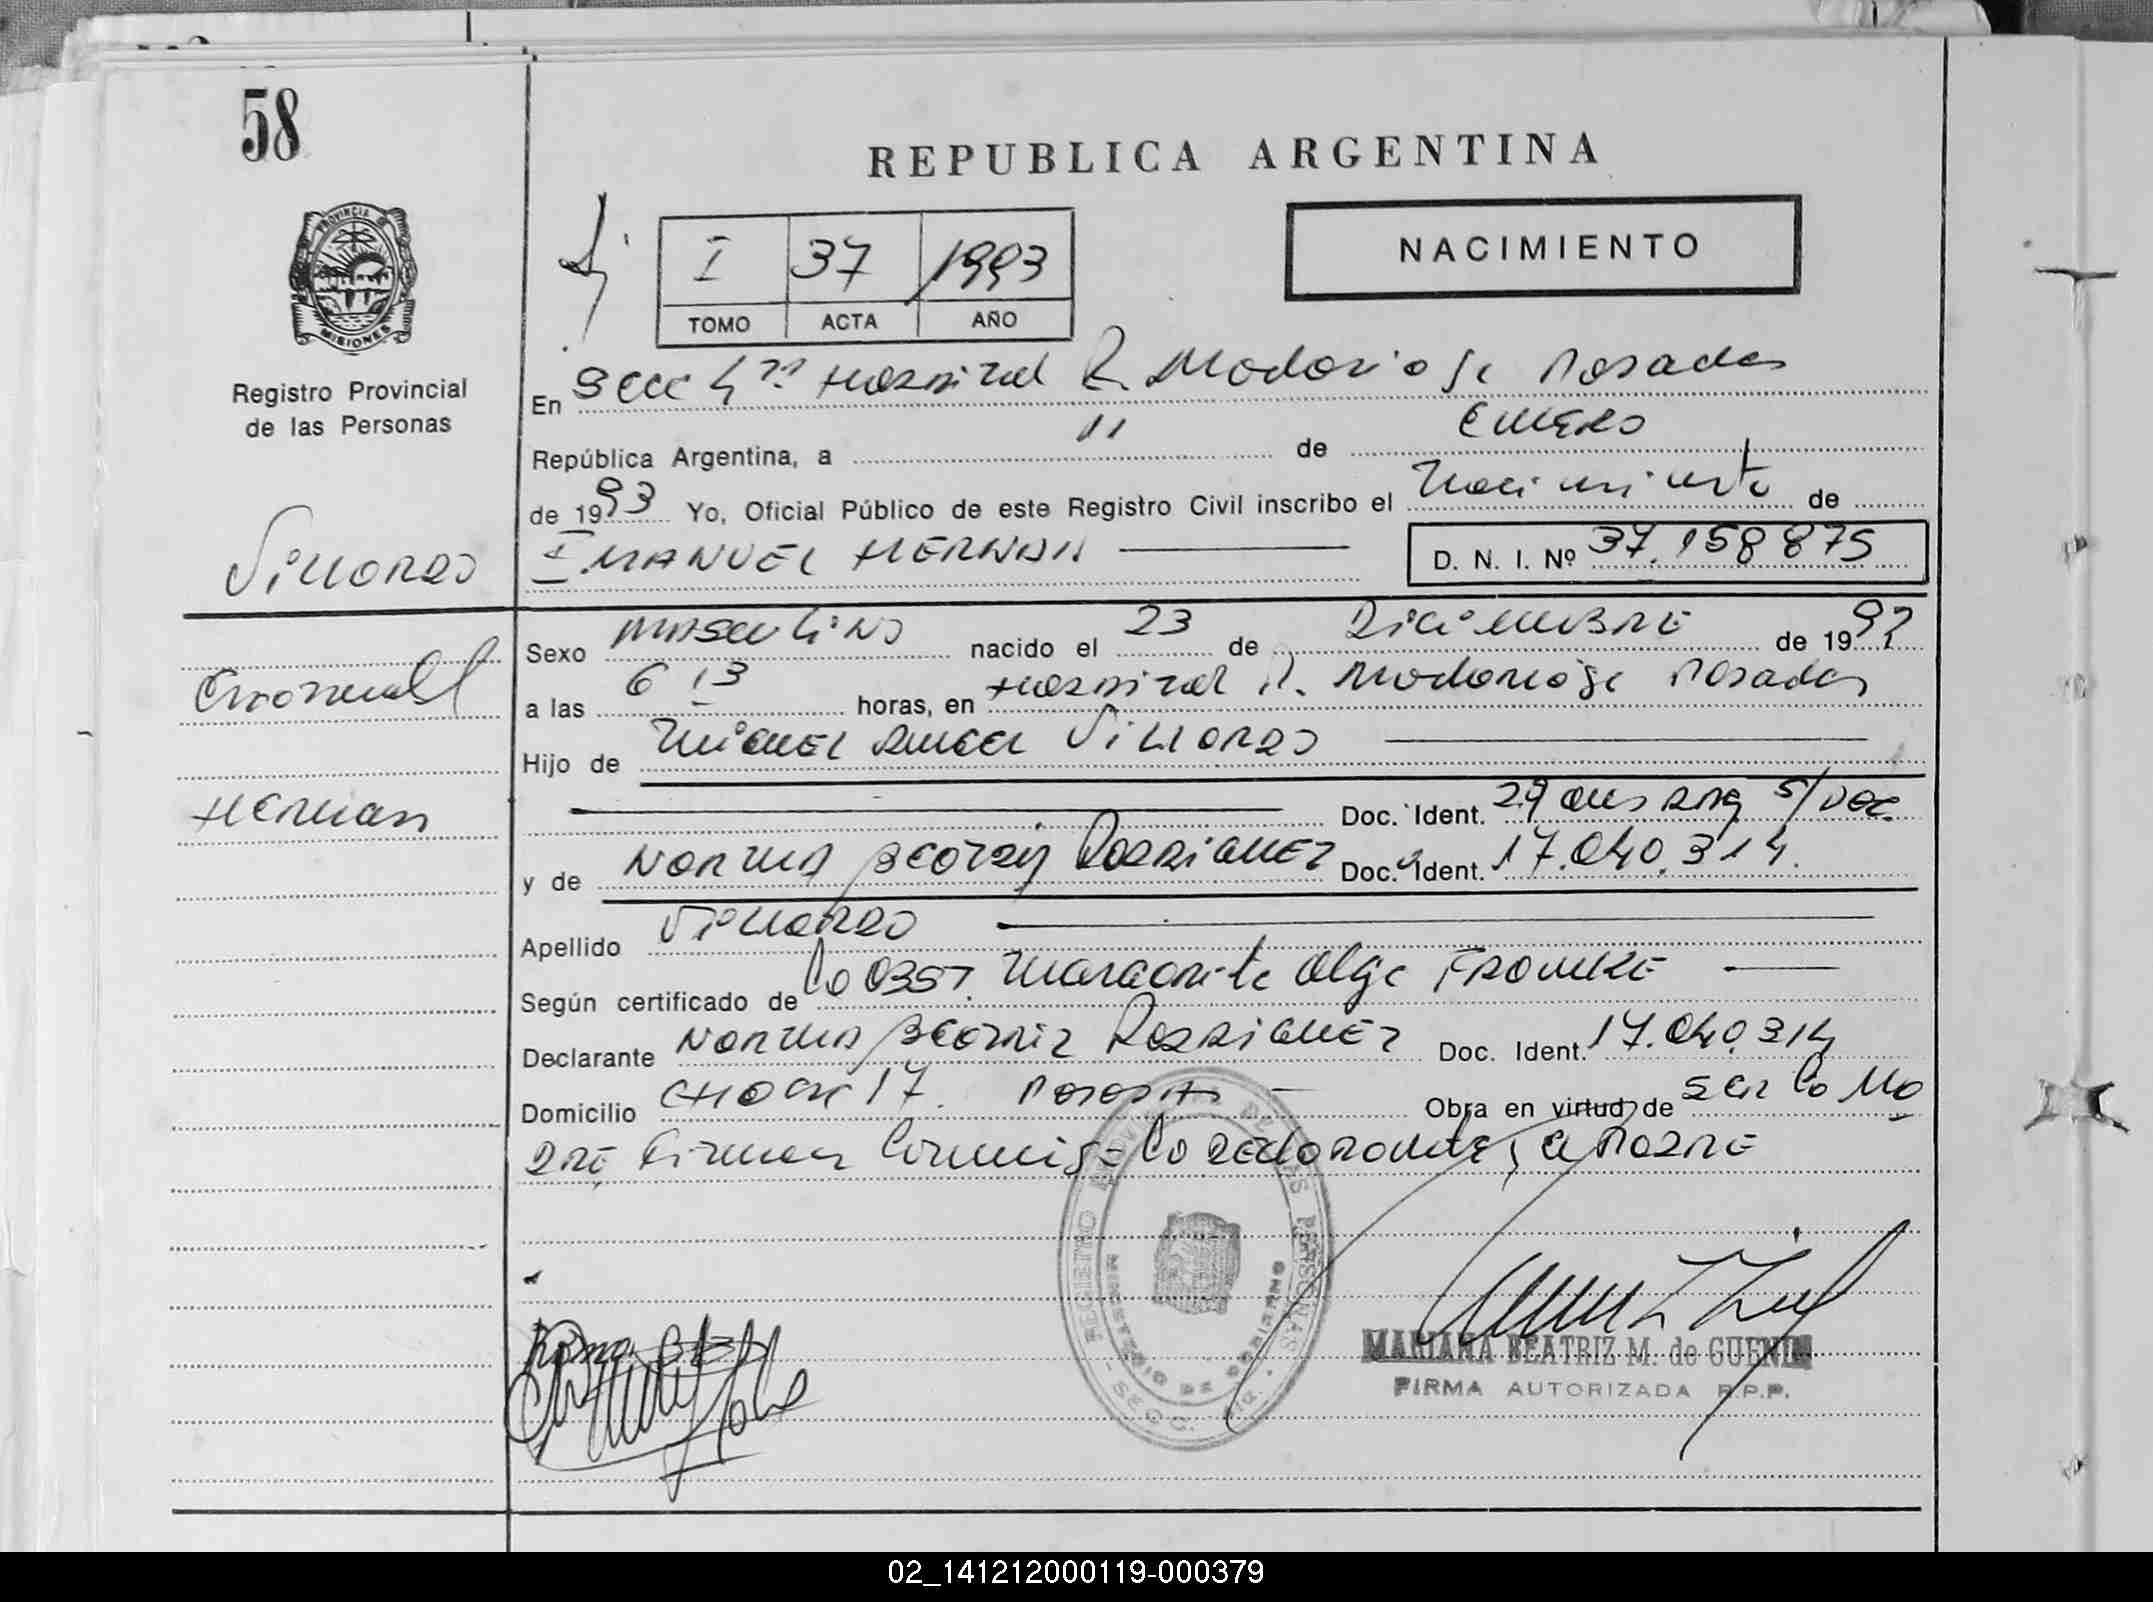 58
REPUBLICA ARGENTINA
PROVINCIA DE
MISIONES
Registro Provincial
de las Personas
I 37 1993
TOMO ACTA AÑO
NACIMIENTO
En Secc 4ta Hospital R. Madariaga Posadas
República Argentina, a 11 de ENERO
de 1993 Yo, Oficial Público de este Registro Civil inscribo el Nacimiento de
Villordo
EMANUEL HERNAN
D. N. I. Nº 37.158875
Emanuel
Hernan
Sexo masculino nacido el 23 de Diciembre de 1992
a las 6 13 horas, en Hospital R. Madariaga Posadas
Hijo de Miguel Angel Villordo
Doc. Ident. 29 años Arg S/Doc.
y de Norma Beatriz Rodriguez Doc. Ident. 17.040.314.
Apellido Villordo
Según certificado de La Obst. Margarita Olga FROMKE
Declarante Norma Beatriz Rodriguez Doc. Ident. 17.040.314
Domicilio CHACRA 17. Posadas Obra en virtud de ser la Ma
dre Firman Conmigo la declarante y el padre
REGISTRO PROVINCIAL DE LAS PERSONAS
MINISTERIO DE GOBIERNO
MARIANA BEATRIZ M. de GUENIN
FIRMA AUTORIZADA R.P.P.
02_141212000119-000379